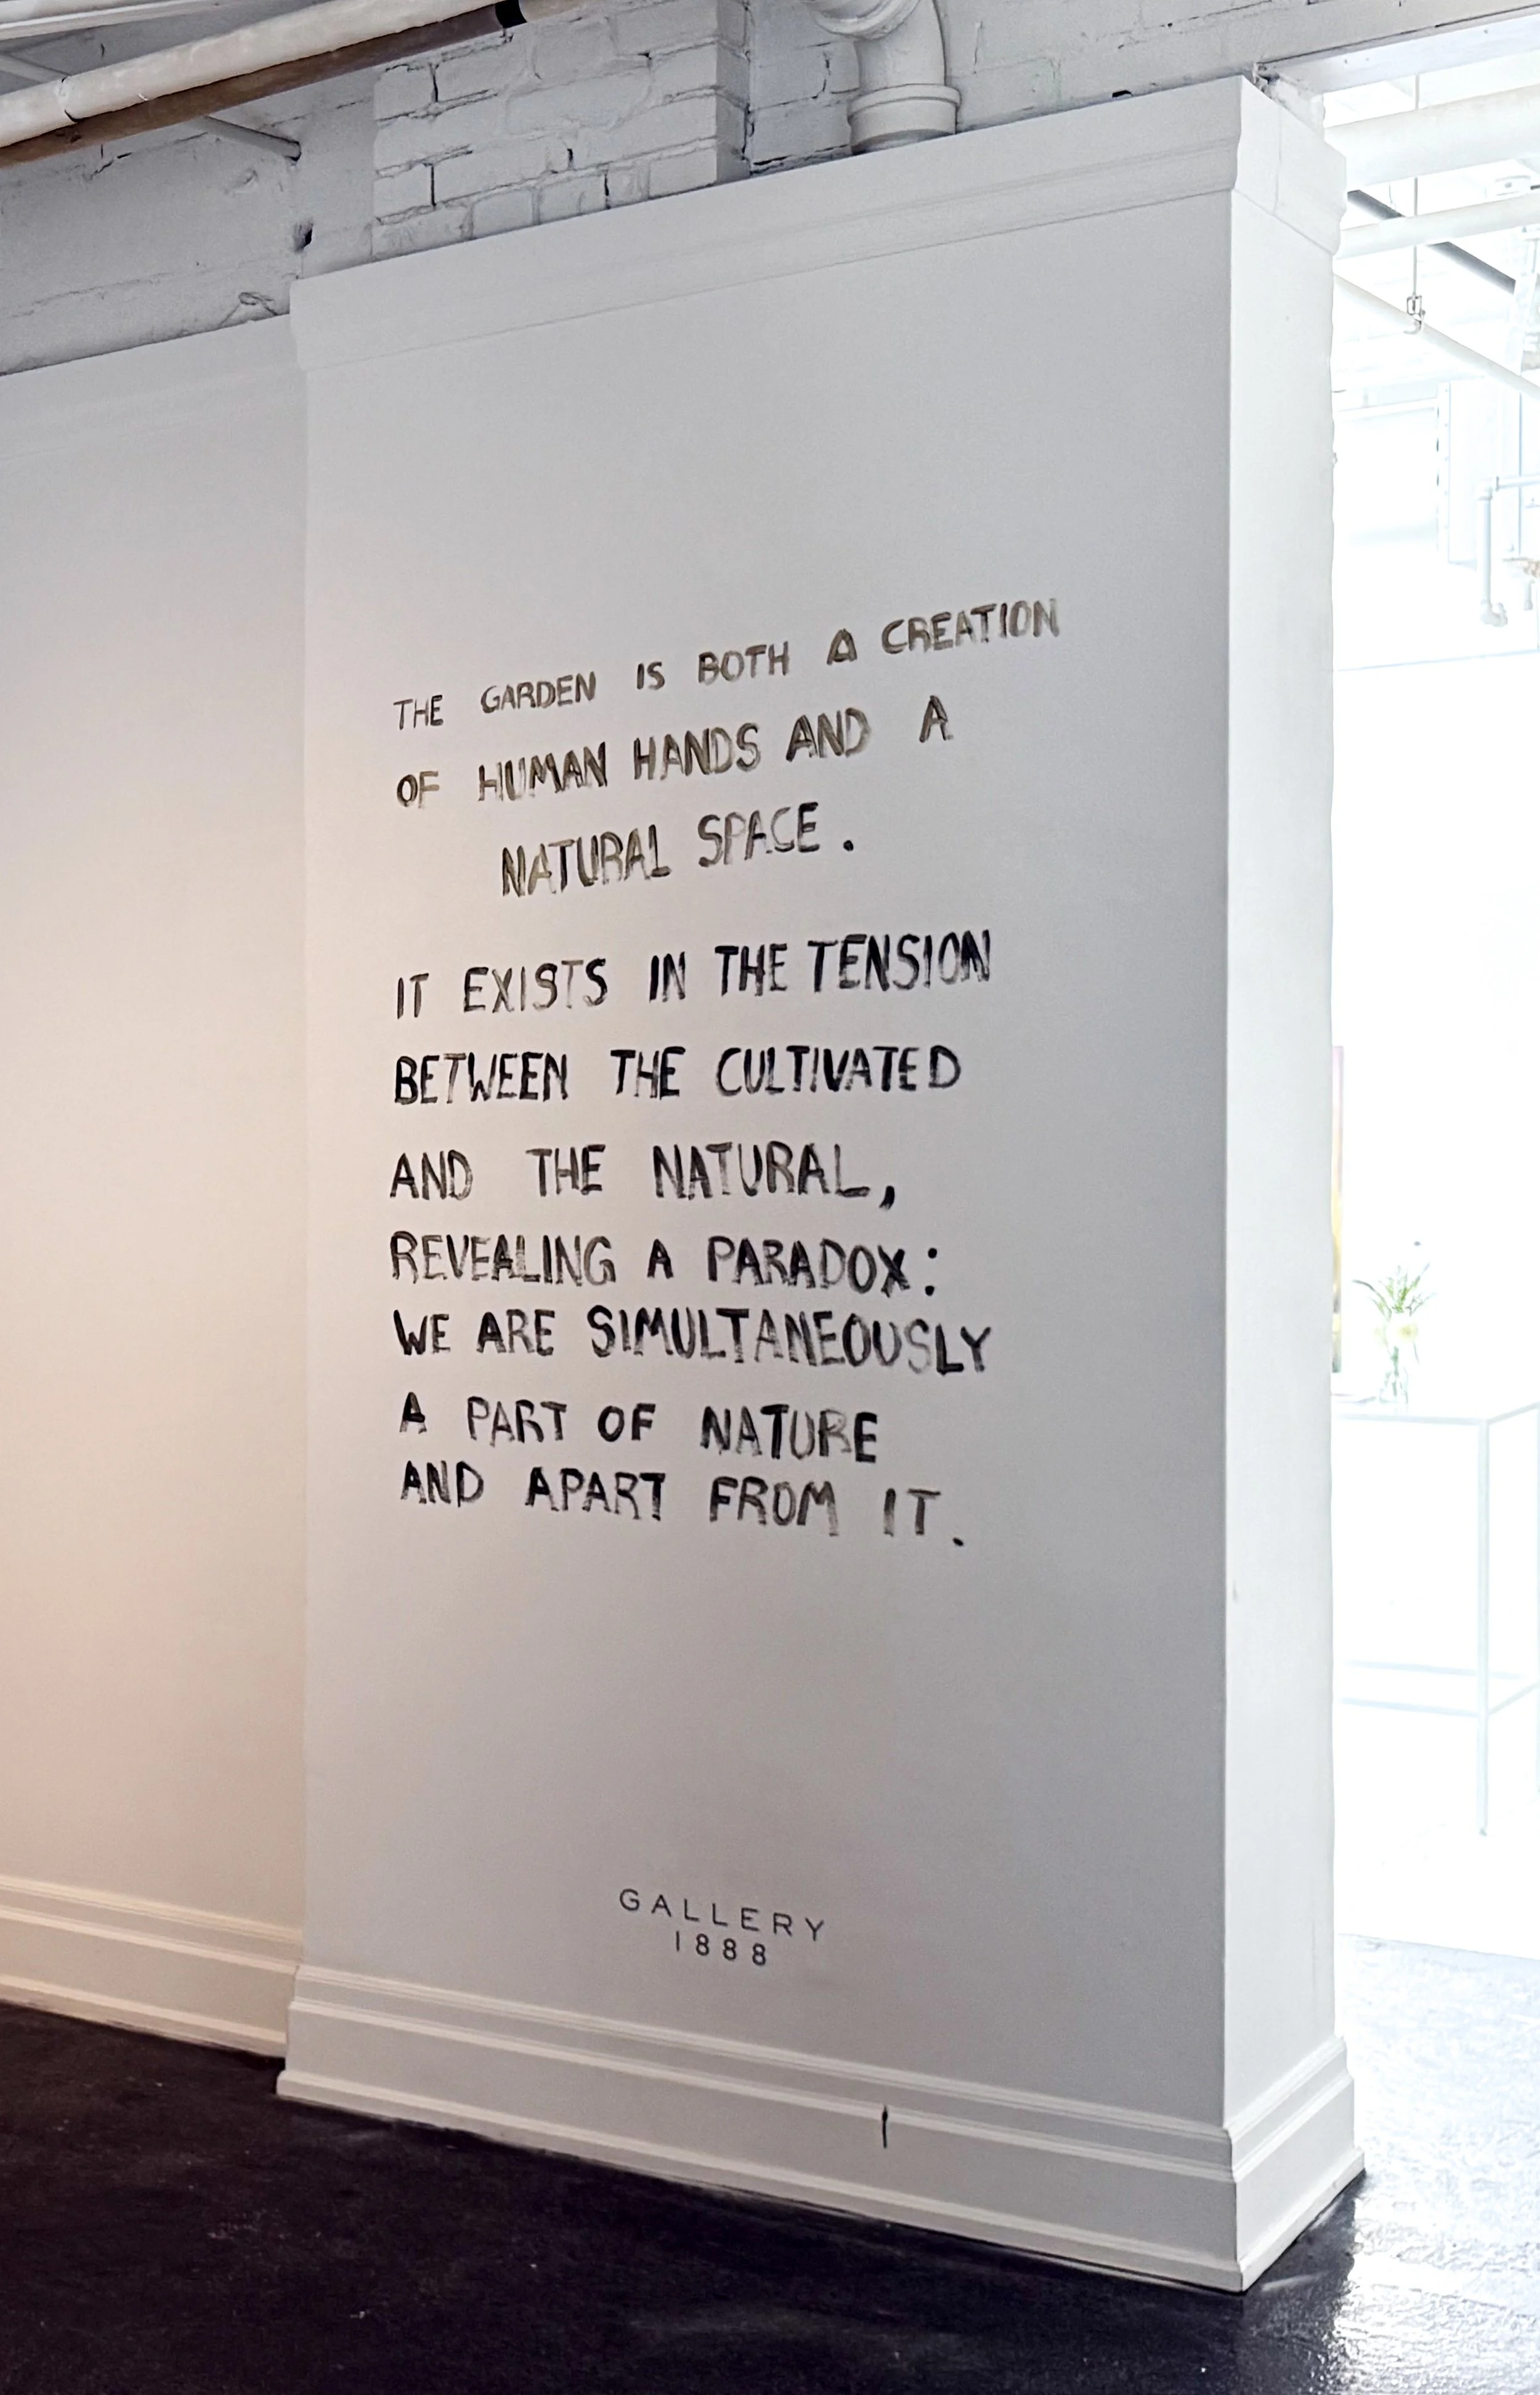 THE GARDEN IS BOTH A CREATION
OF HUMAN HANDS AND A
NATURAL SPACE.
IT EXISTS IN THE TENSION
BETWEEN THE CULTIVATED
AND THE NATURAL,
REVEALING A PARADOX:
WE ARE SIMULTANEOUSLY
A PART OF NATURE
AND APART FROM IT.
GALLERY
1888